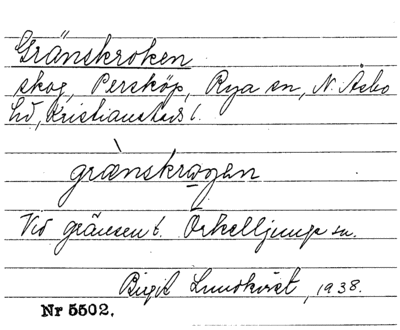 Gränskroken
skog, Persköp, Rya sn, N. Åsbo
hd, Kristianstads l.
grànskrogen
Vid gränsen t. Örkelljunga sn.
Birgit Lundkvist, 1938.
Nr 5502.